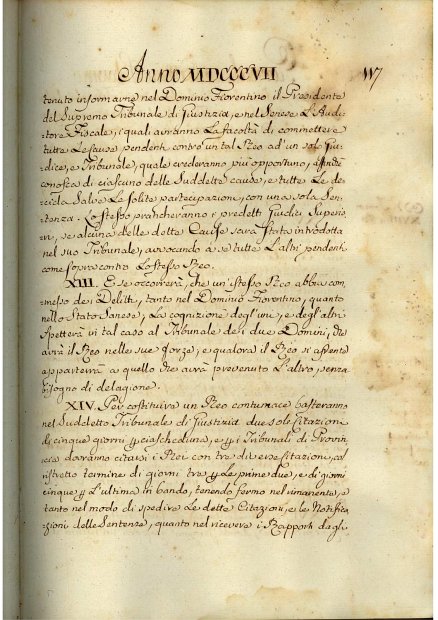 Anno MDCCCVII
tenuto informarne nel Dominio Fiorentino il Presidente
del Supremo Tribunale di Giustizia, e nel Senese L'Audi-
tore Fiscale, i quali avranno La facoltà di commettere
tutte Le cause pendenti contro un tal Reo ad un solo Giu-
dice, e Tribunale, quale crederanno più opportuno,
conosca di ciascuno delle Suddette cause, e tutte Le de-
cida Salve Le solite partecipazioni, con una sola Sen-
tenza. Lo stesso praticheranno i predetti Giudici Superio-
ri, se alcuna delle dette Cause sarà stata introdotta
nel suo Tribunale, avvocando a se tutte L'altre pendenti
come sopra contro Lo stesso Reo.
XIII. E se occorrerà, che un istesso Reo abbia com-
messo dei Delitti, tanto nel Dominio Fiorentino, quanto
nello Stato Sanese, La cognizione degl'uni, e degl'altri
spetterà in tal caso al Tribunale dei due Domini, che
avrà il Reo nelle sue forze, e qualora il Reo si assente
apparterrà a quello che avrà prevenuto L'altro, senza
bisogno di delagione.
XIV. Per costituire un Reo contumace basteranno
nel Suddetto Tribunale di Giustizia due sole Citazioni
di cinque giorni p ciascheduna, e p i Tribunali di Provin-
cia dovranno citarsi i Rei con tre diverse Citazioni, col
ristretto termine di giorni tre p Le prime due, e di giorni
cinque p L'ultima in bando, tenendo fermo nel rimanente, e
tanto nel modo di spedire Le dette Citazioni, e Le Notifica-
zioni delle Sentenze, quanto nel ricevere i Rapporti dagli